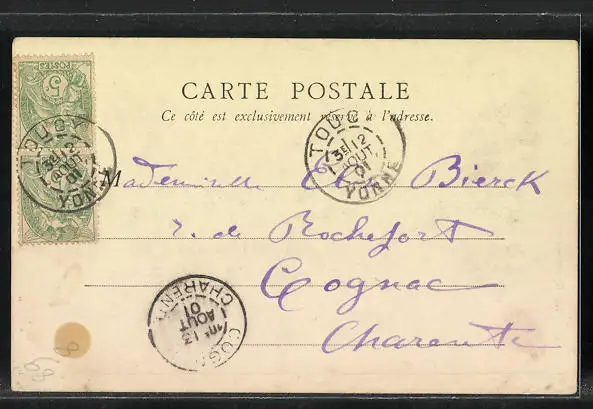 CARTE POSTALE
Ce côté est exclusivement réservé à l'adresse.
5c
POSTES
TOUCY
3E 12
AOUT
01
YONNE
TOUCY
3E 12
AOUT
01
YONNE
Mademoiselle Bierck
r. de Rochefort
Cognac
Charente
COGNAC
13
AOUT
01
CHARENTE